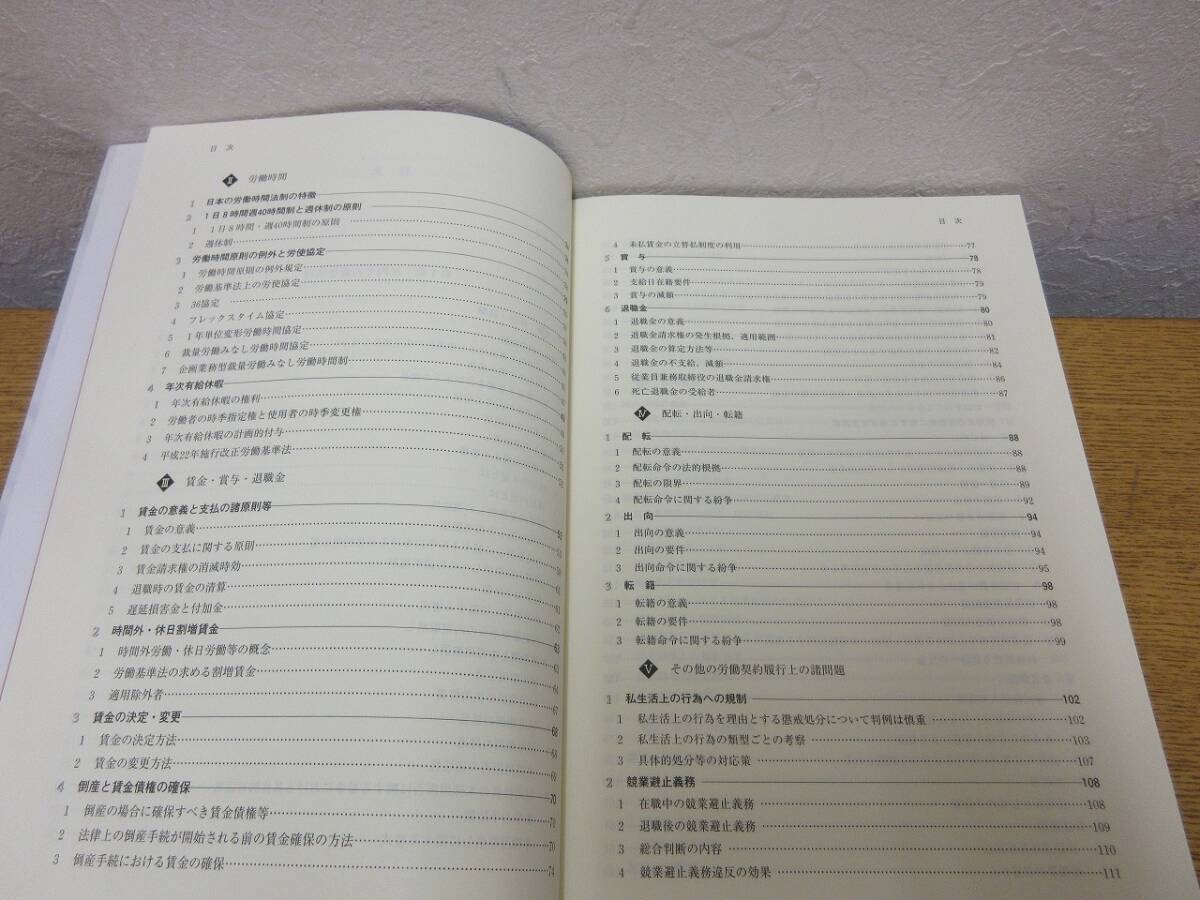 目 次
Ⅱ 労働時間
1 日本の労働時間法制の特徴
2 1日8時間週40時間制と週休制の原則
1 1日8時間・週40時間制の原則
2 週休制
3 労働時間原則の例外と労使協定
1 労働時間原則の例外規定
2 労働基準法上の労使協定
3 36協定
4 フレックスタイム協定
5 1年単位変形労働時間協定
6 裁量労働みなし労働時間協定
7 企画業務型裁量労働みなし労働時間制
4 年次有給休暇
1 年次有給休暇の権利
2 労働者の時季指定権と使用者の時季変更権
3 年次有給休暇の計画的付与
4 平成22年施行改正労働基準法
Ⅲ 賃金・賞与・退職金
1 賃金の意義と支払の諸原則等
1 賃金の意義
2 賃金の支払に関する原則
3 賃金請求権の消滅時効
4 退職時の賃金の清算
5 遅延損害金と付加金 62
2 時間外・休日割増賃金 63
1 時間外労働・休日労働等の概念 63
2 労働基準法の求める割増賃金 64
3 適用除外者 67
3 賃金の決定・変更 68
1 賃金の決定方法 68
2 賃金の変更方法 69
4 倒産と賃金債権の確保 70
1 倒産の場合に確保すべき賃金債権等 70
2 法律上の倒産手続が開始される前の賃金確保の方法 70
3 倒産手続における賃金の確保 74
目 次
4 未払賃金の立替払制度の利用 77
5 賞 与 78
1 賞与の意義 78
2 支給日在籍要件 79
3 賞与の減額 79
6 退職金 80
1 退職金の意義 80
2 退職金請求権の発生根拠、適用範囲 81
3 退職金の算定方法等 82
4 退職金の不支給、減額 84
5 従業員兼務取締役の退職金請求権 86
6 死亡退職金の受給者 87
Ⅳ 配転・出向・転籍
1 配 転 88
1 配転の意義 88
2 配転命令の法的根拠 88
3 配転の限界 89
4 配転命令に関する紛争 92
2 出 向 94
1 出向の意義 94
2 出向の要件 94
3 出向命令に関する紛争 95
3 転 籍 98
1 転籍の意義 98
2 転籍の要件 98
3 転籍命令に関する紛争 99
Ⅴ その他の労働契約履行上の諸問題
1 私生活上の行為への規制 102
1 私生活上の行為を理由とする懲戒処分について判例は慎重 102
2 私生活上の行為の類型ごとの考察 103
3 具体的処分等の対応策 107
2 競業避止義務 108
1 在職中の競業避止義務 108
2 退職後の競業避止義務 109
3 総合判断の内容 110
4 競業避止義務違反の効果 111